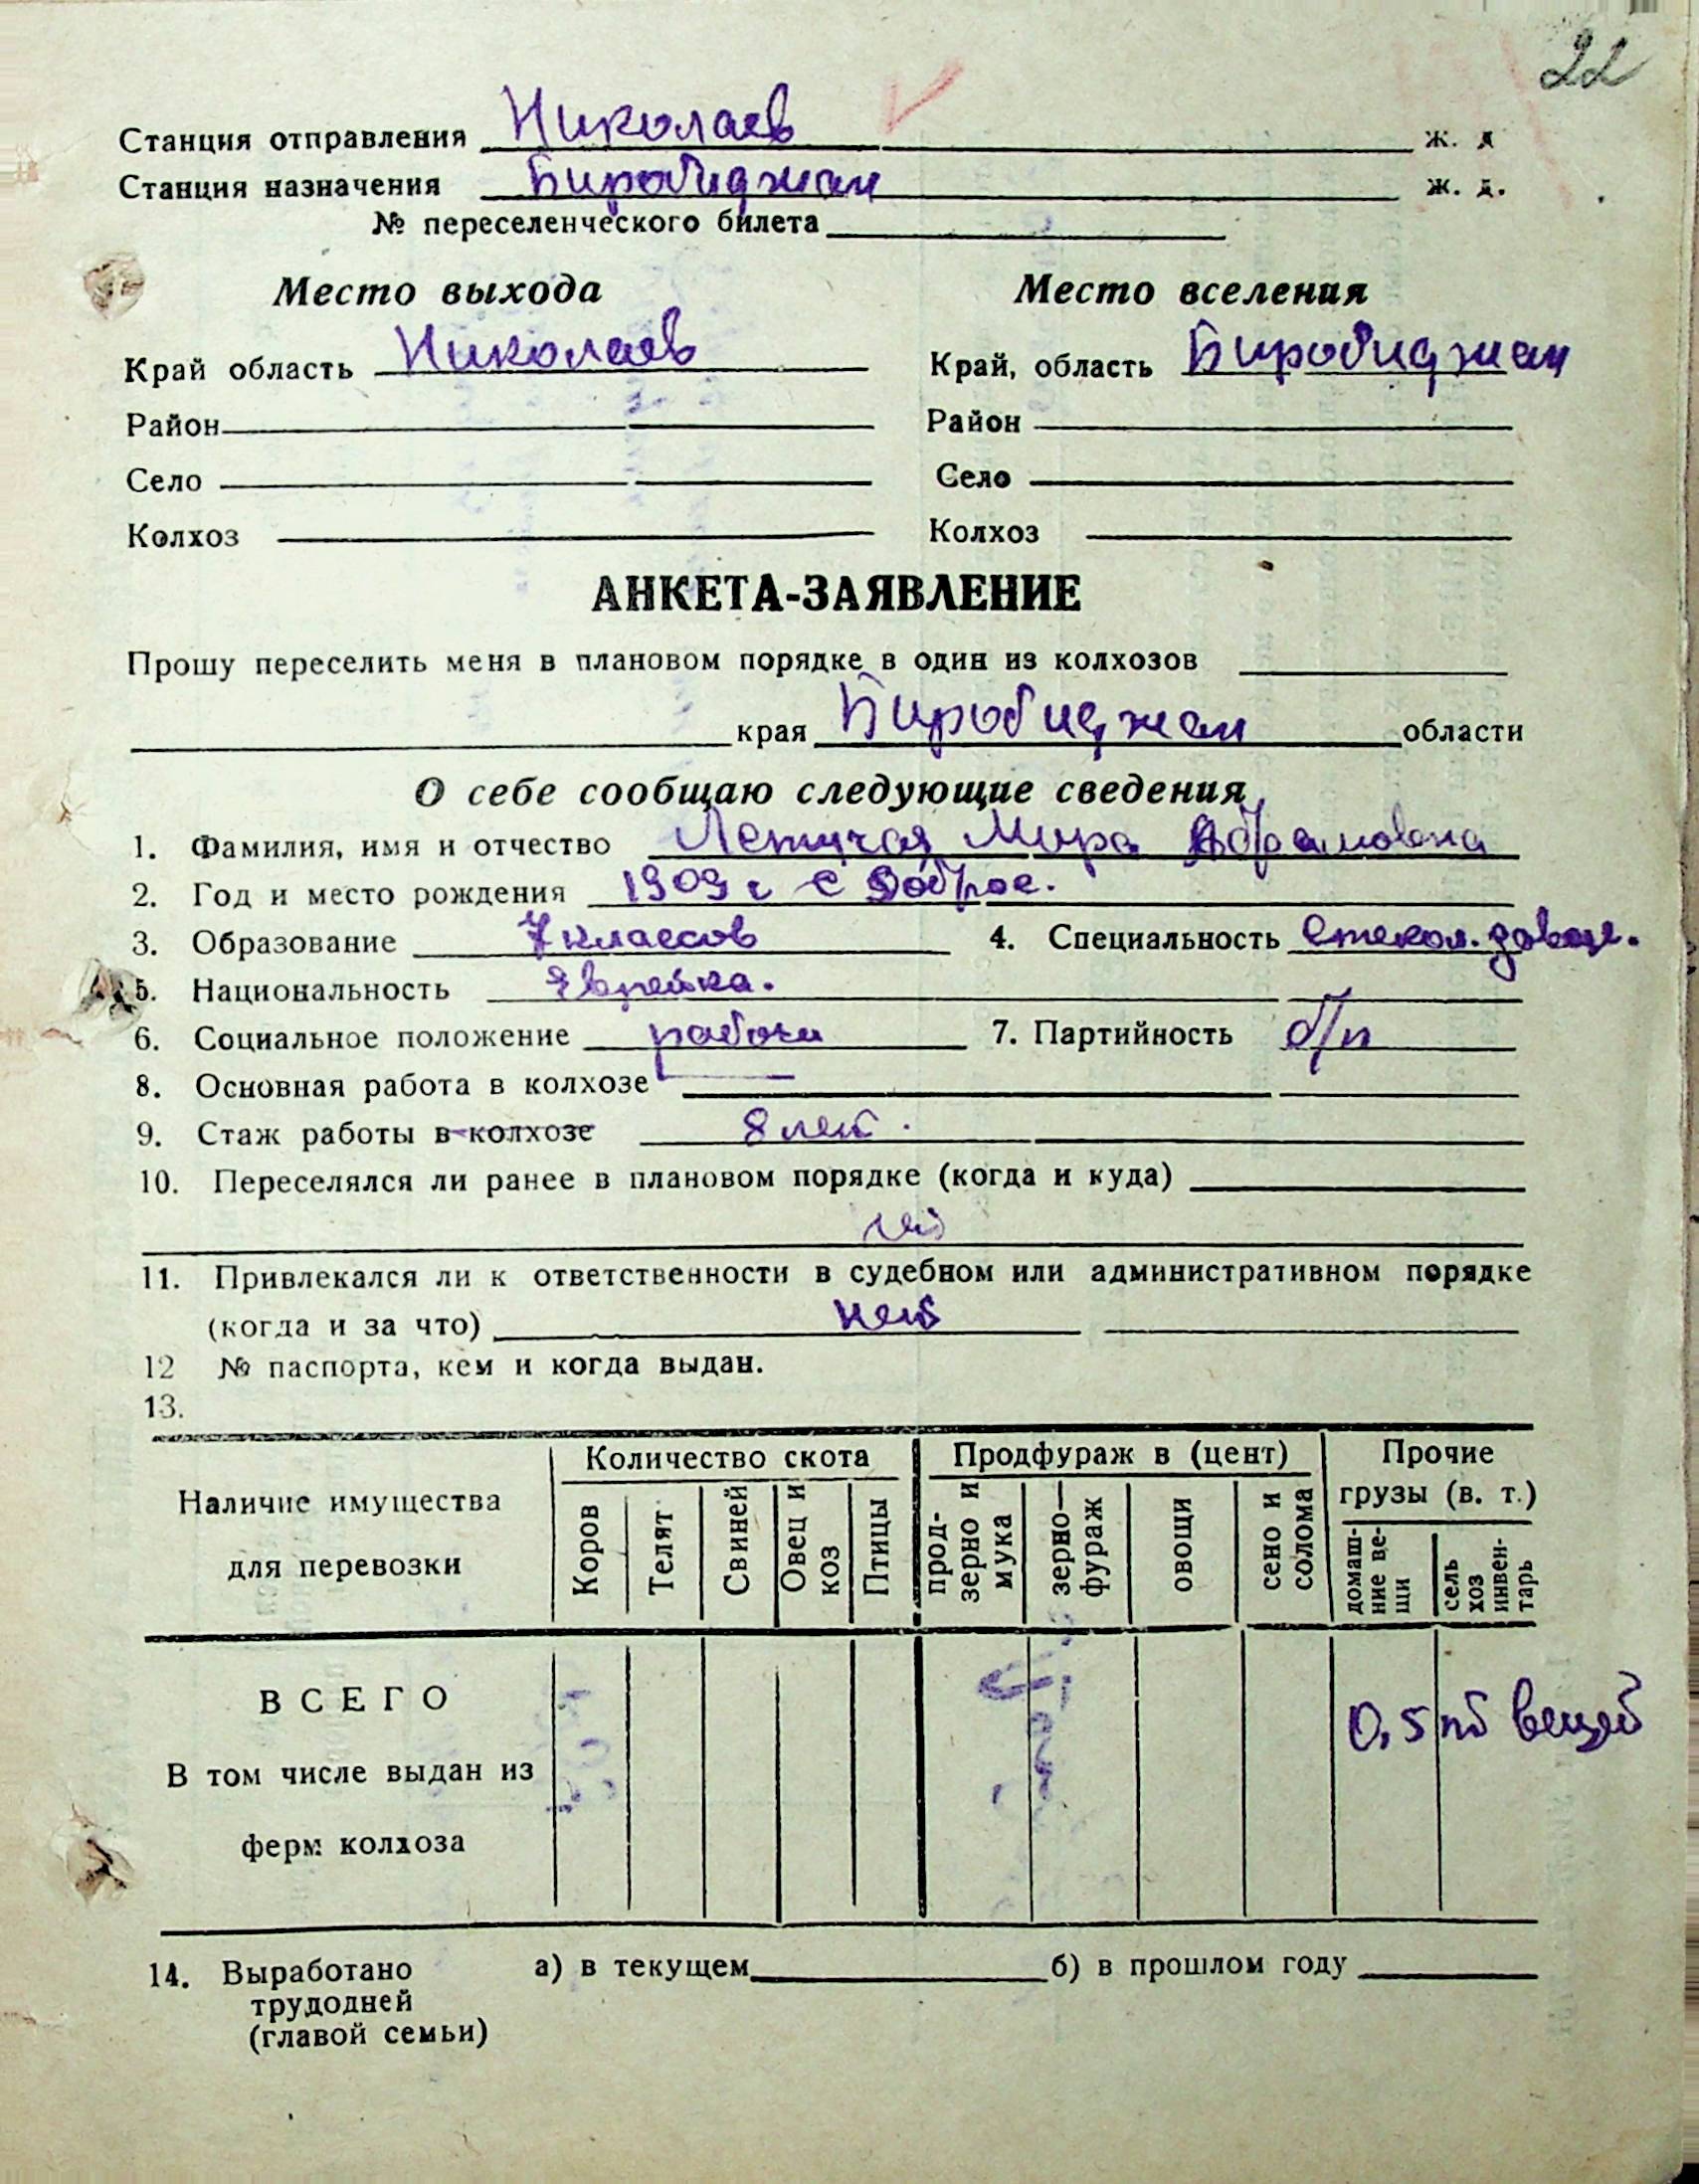 22
Станция отправления Николаев ж. д
Станция назначения Биробиджан ж. д.
№ переселенческого билета
Место выхода Место вселения
Край область Николаев Край, область Биробиджан
Район Район
Село Село
Колхоз Колхоз
АНКЕТА-ЗАЯВЛЕНИЕ
Прошу переселить меня в плановом порядке в один из колхозов
края Биробиджан области
О себе сообщаю следующие сведения
1. Фамилия, имя и отчество Летучая Мира Абрамовна
2. Год и место рождения 1909 г с Доброе.
3. Образование 7 классов 4. Специальность
5. Национальность Еврейка.
6. Социальное положение рабочи 7. Партийность б/п
8. Основная работа в колхозе —
9. Стаж работы в колхозе 8 лет.
10. Переселялся ли ранее в плановом порядке (когда и куда)
нет
11. Привлекался ли к ответственности в судебном или административном порядке
(когда и за что) нет
12 № паспорта, кем и когда выдан.
13.
Наличие имущества для перевозки
Количество скота Продфураж в (цент) Прочие грузы (в. т.)
Коров Телят Свиней Овец и коз Птицы прод-зерно и мука зерно—фураж овощи сено и солома домаш-ние ве-щи сель хоз инвен-тарь
ВСЕГО 0,5 вещей
В том числе выдан из
ферм колхоза
14. Выработано а) в текущем б) в прошлом году
трудодней
(главой семьи)